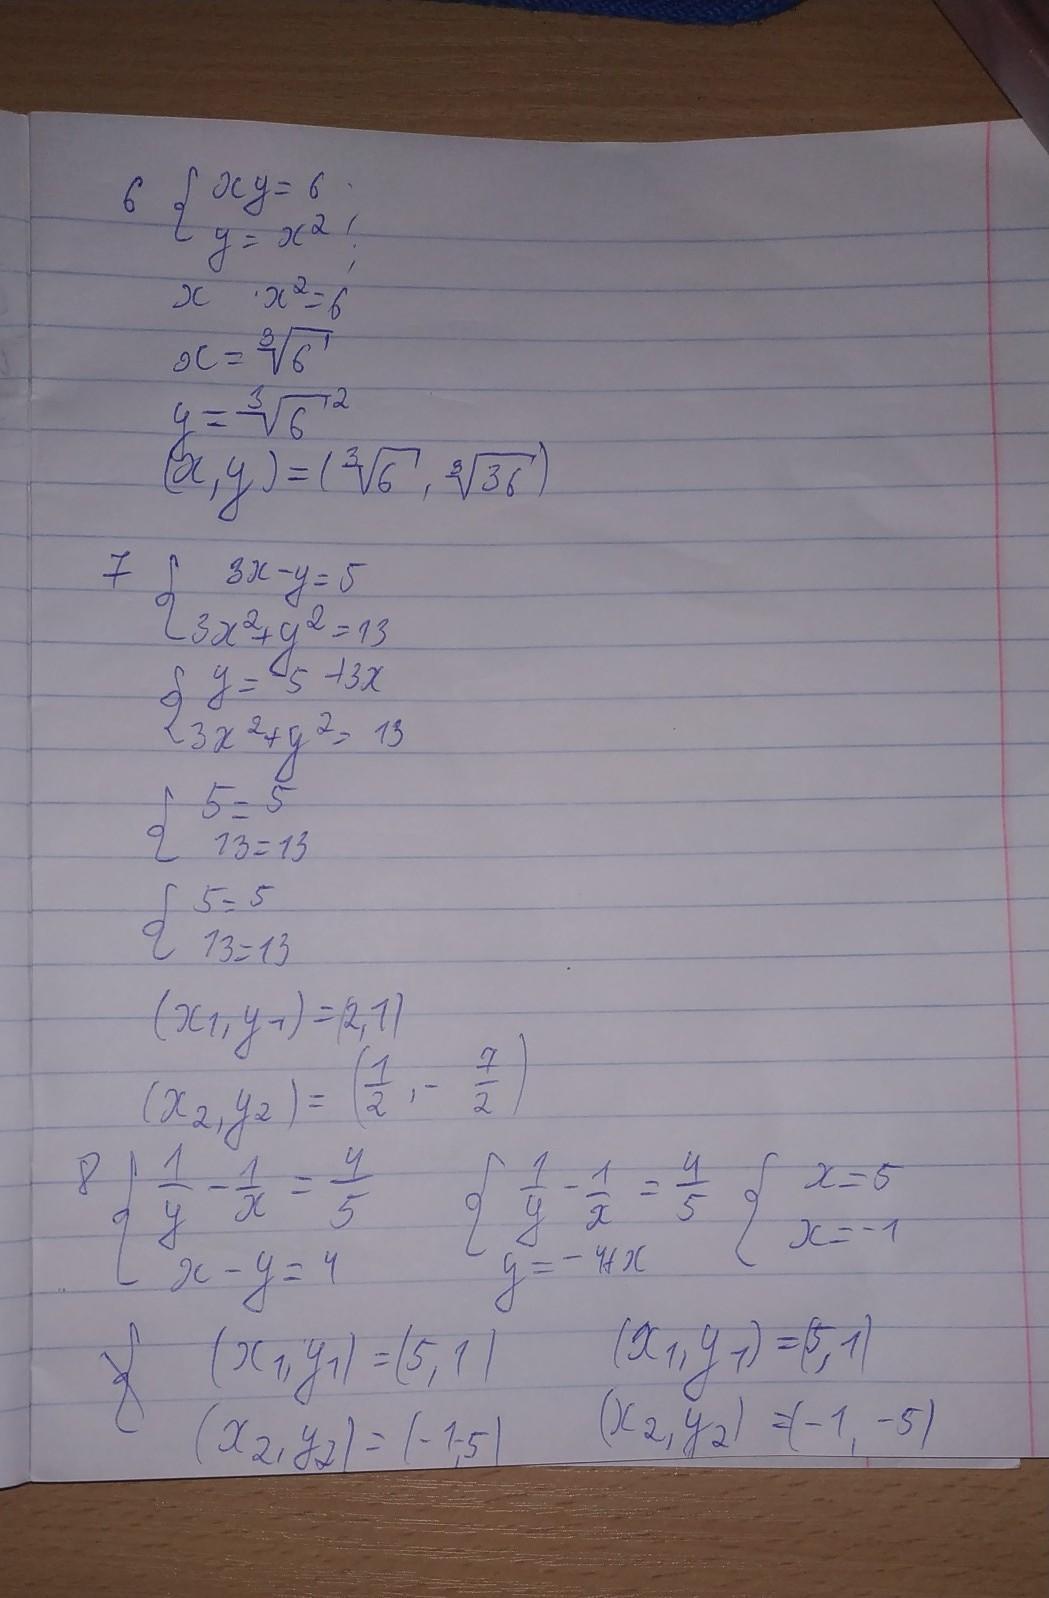 6 { xy = 6
y = x²
x · x² = 6
x = ∛6
y = ∛6²
(x, y) = (∛6, ∛36)
7 { 3x - y = 5
3x² + y² = 13
{ y = -5 + 3x
3x² + y² = 13
{ 5 = 5
13 = 13
{ 5 = 5
13 = 13
(x₁, y₁) = (2, 1)
(x₂, y₂) = (1/2, - 7/2)
8 { 1/y - 1/x = 4/5 { 1/y - 1/x = 4/5 { x = 5
x - y = 4 y = -4 + x x = -1
{ (x₁, y₁) = (5, 1) (x₁, y₁) = (5, 1)
(x₂, y₂) = (-1, -5) (x₂, y₂) = (-1, -5)